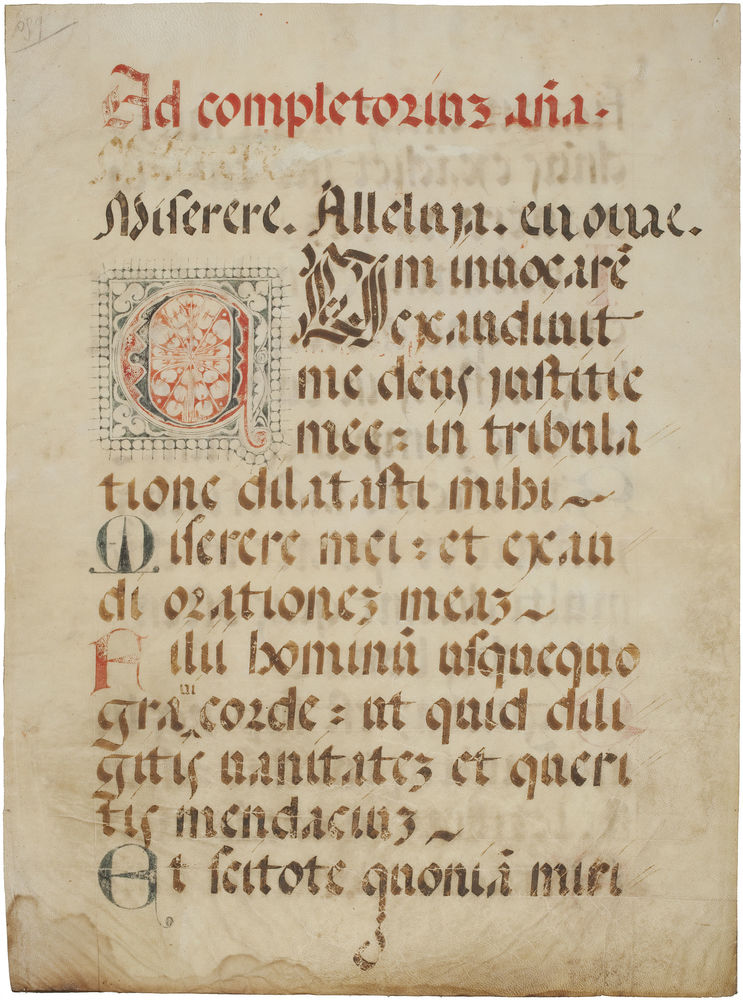 Ad completoriuz aña.
Miserere. Alleluja. euouae.
CUm inuocarē
exaudiuit
me deus justitie
mee: in tribula
tione dilatasti mihi~
Miserere mei: et exau
di orationez meaz~
Filii hominū usquequo
graui corde: ut quid dili
gitis uanitatez et queri
tis mendaciuz~
Et scitote quoniā miri